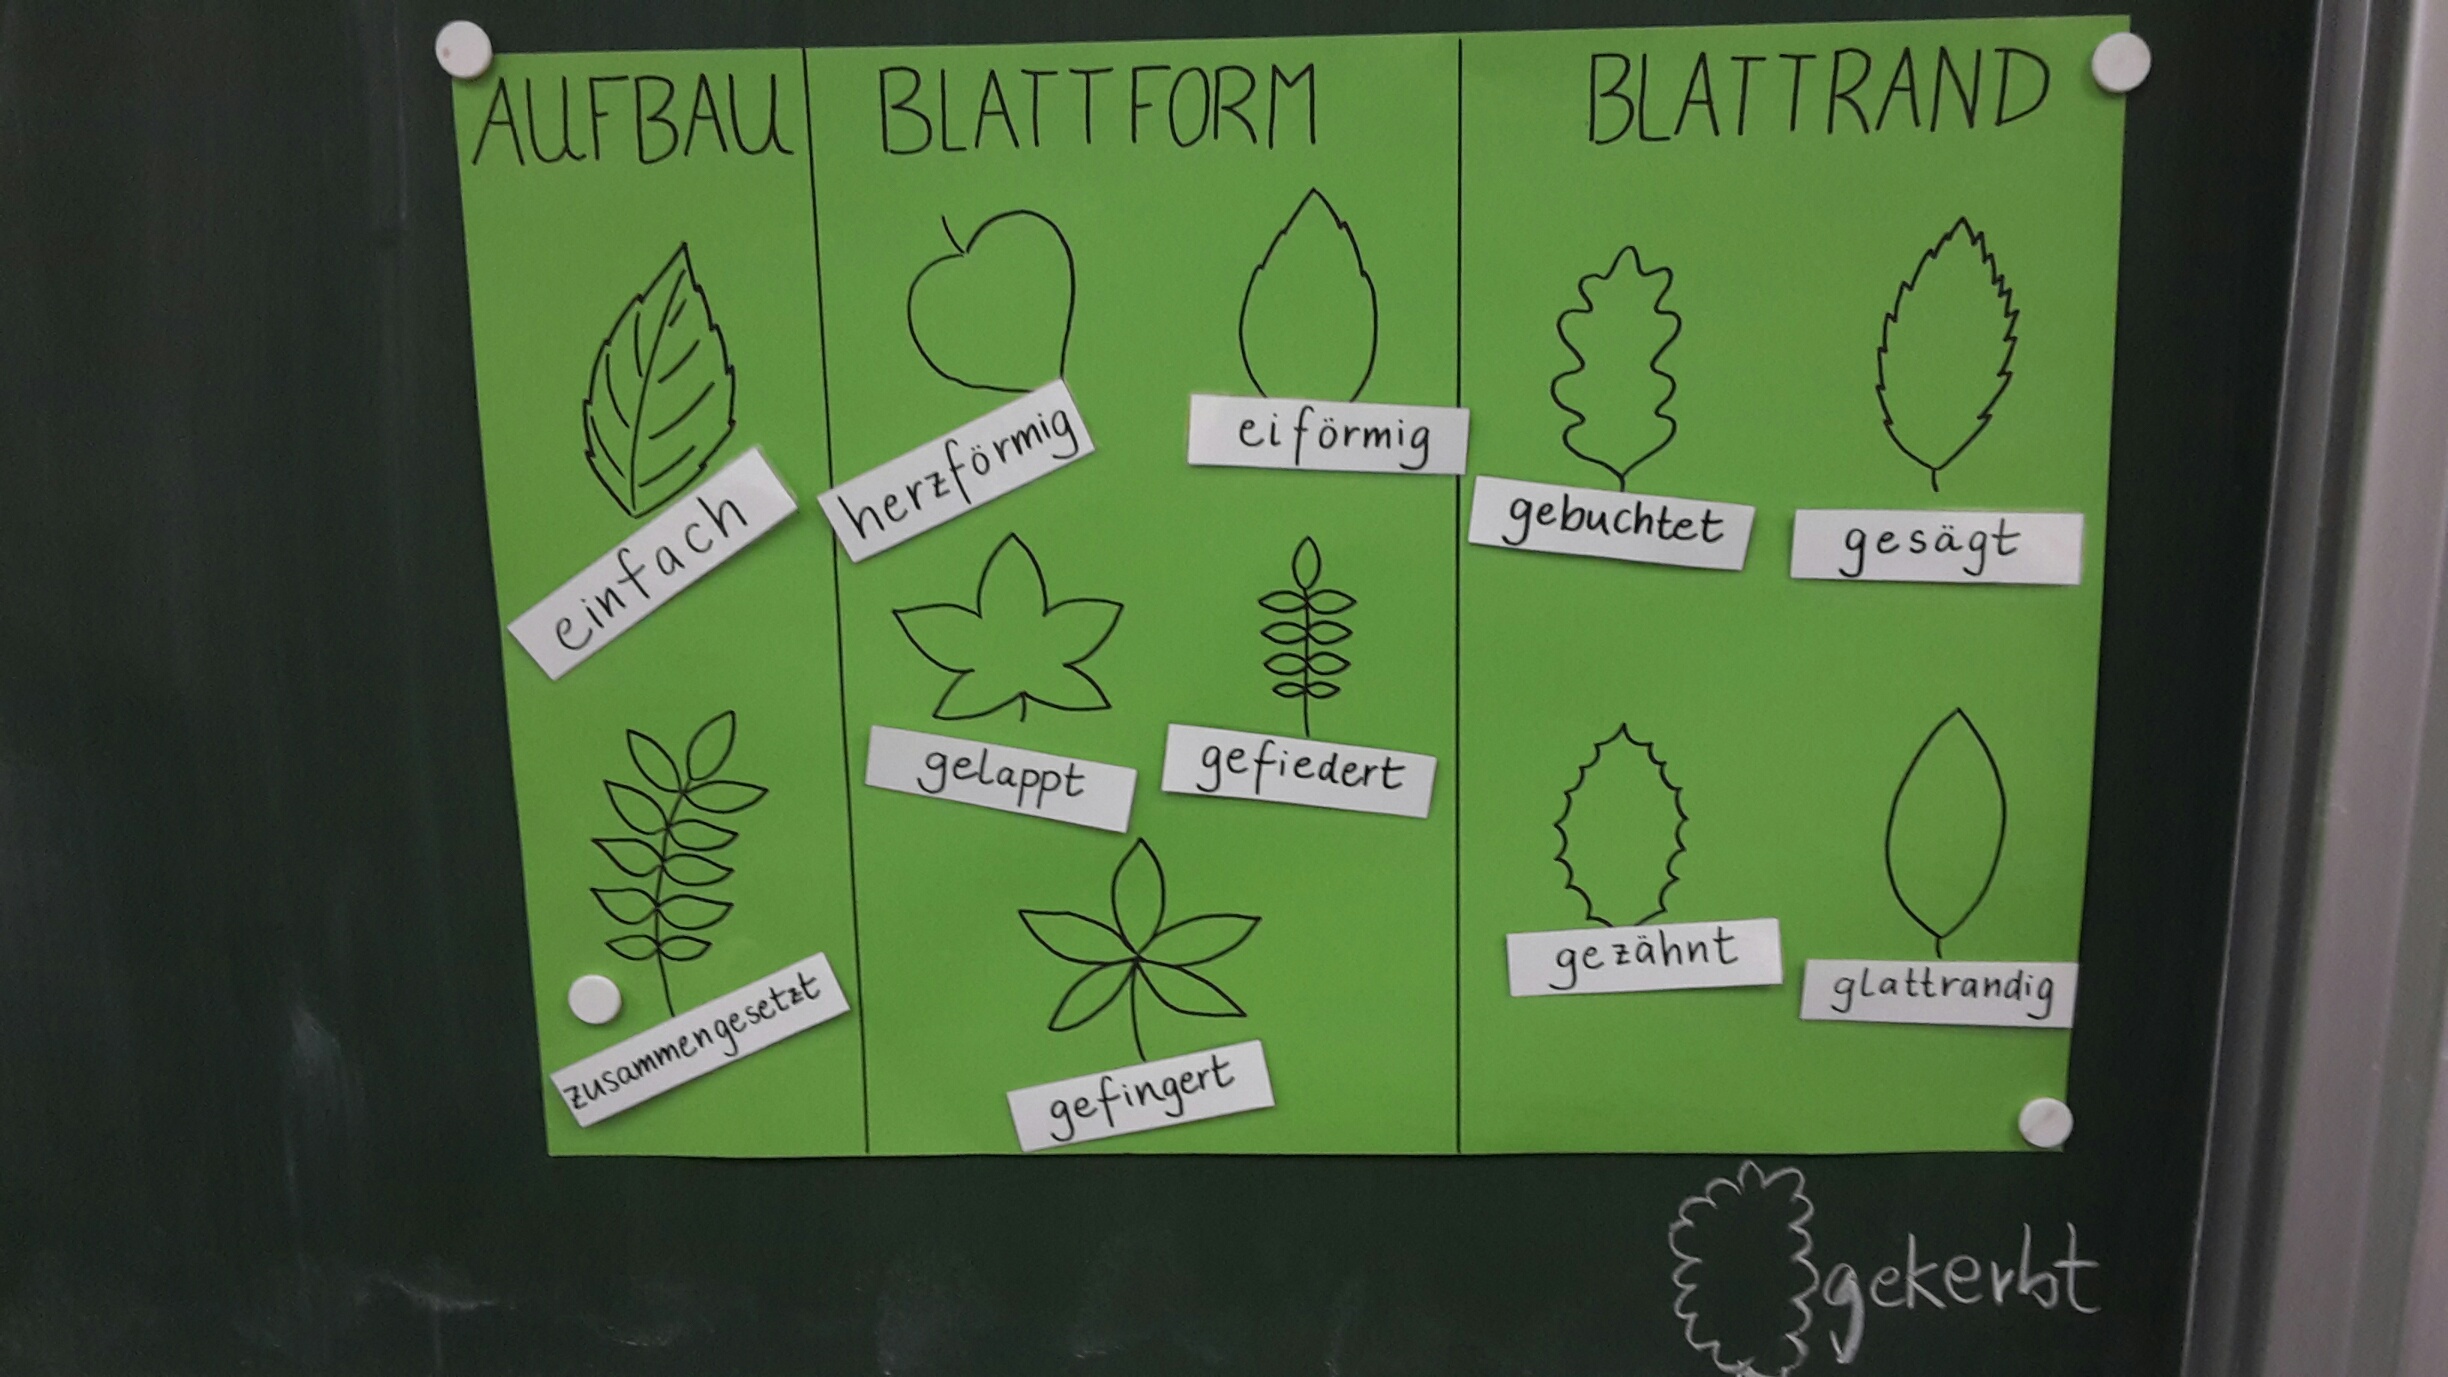 AUFBAU
BLATTFORM
BLATTRAND
einfach
zusammengesetzt
herzförmig
eiförmig
gelappt
gefiedert
gefingert
gebuchtet
gesägt
gezähnt
glattrandig
gekerbt